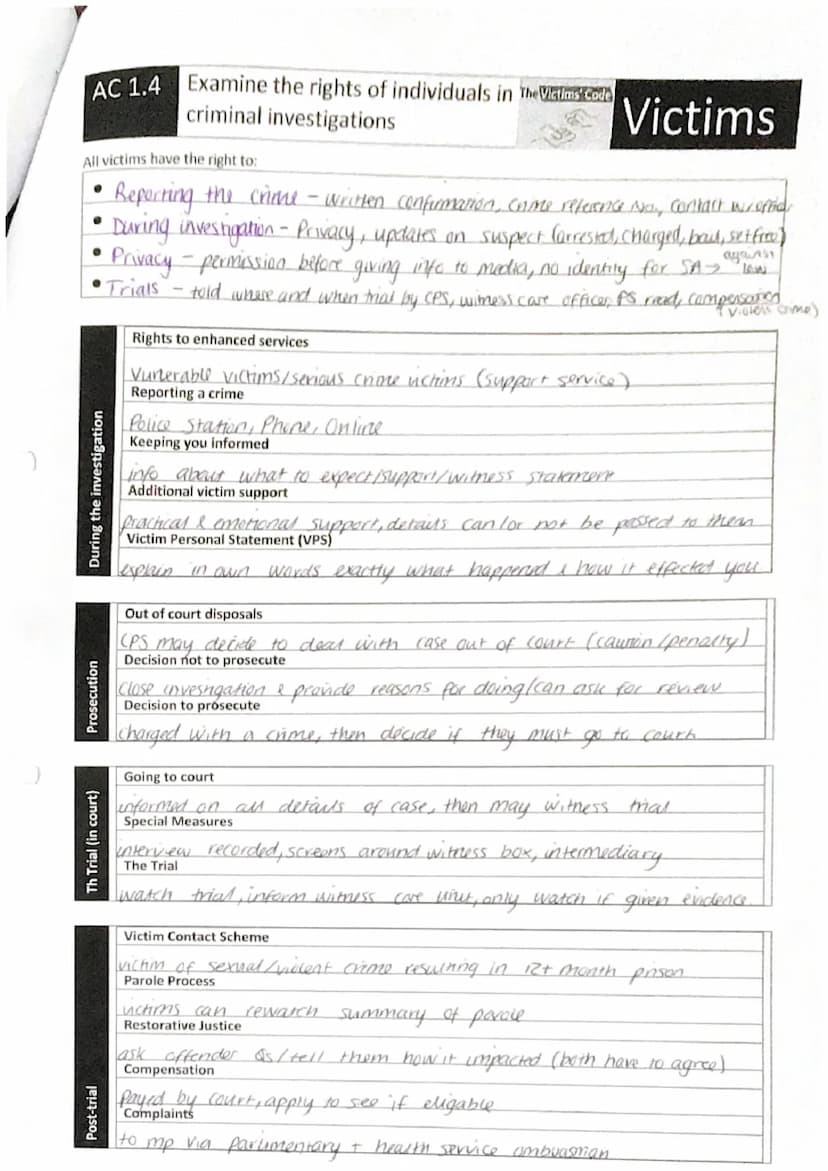 AC 1.4
Examine the rights of individuals in
criminal investigations
The Victims' Code
Victims
All victims have the right to:
• Reporting the crime – written confirmation, crime reference No, contact w/
• During investigation – Privacy, updates on suspect (arrested, charged, bail, setfree)
• Privacy – permission before giving info to media, no identity for SA → against law
• Trials – told where and when trial by CPS, witness care officer, PS read, compensation
(violent crime)
During the investigation
Rights to enhanced services
Vunerable victims/serious crime victims (support service)
Reporting a crime
Police Station, Phone, Online
Keeping you informed
info about what to expect/support/witness statement
Additional victim support
practical & emotional support, details can/or not be passed to them
Victim Personal Statement (VPS)
explain in own words exactly what happened & how it effected you
Prosecution
Out of court disposals
CPS may decide to deal with case out of court (caution/penalty)
Decision not to prosecute
close investigation & provide reasons for doing/can ask for review
Decision to prosecute
charged with a crime, then decide if they must go to court
Th Trial (in court)
Going to court
informed on all details of case, then may witness trial
Special Measures
interview recorded, screens around witness box, intermediary
The Trial
watch trial, inform witness care unit, only watch if given evidence
Post-trial
Victim Contact Scheme
victim of sexual/violent crime resulting in 12+ month prison
Parole Process
victims can rewatch summary of parole
Restorative Justice
ask offender Qs/tell them how it impacted (both have to agree)
Compensation
Payed by court, apply to see if eligable
Complaints
to mp via parlimentary + health service ombudsman